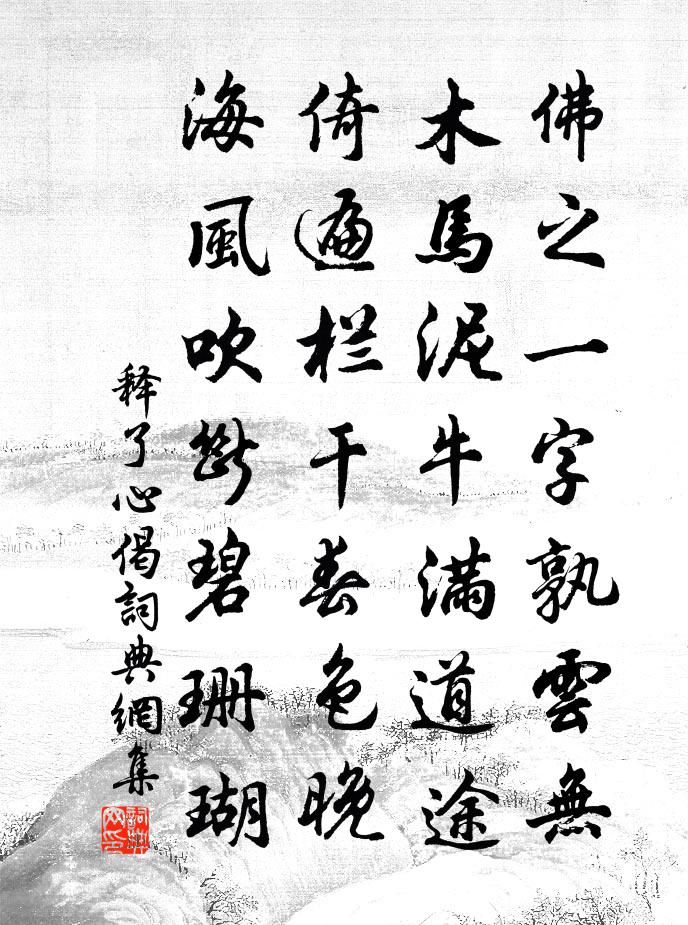 佛之一字孰雲無
木馬泥牛滿道途
倚遍栏干春色晚
海風吹斷碧珊瑚
释了心偈詞典網集